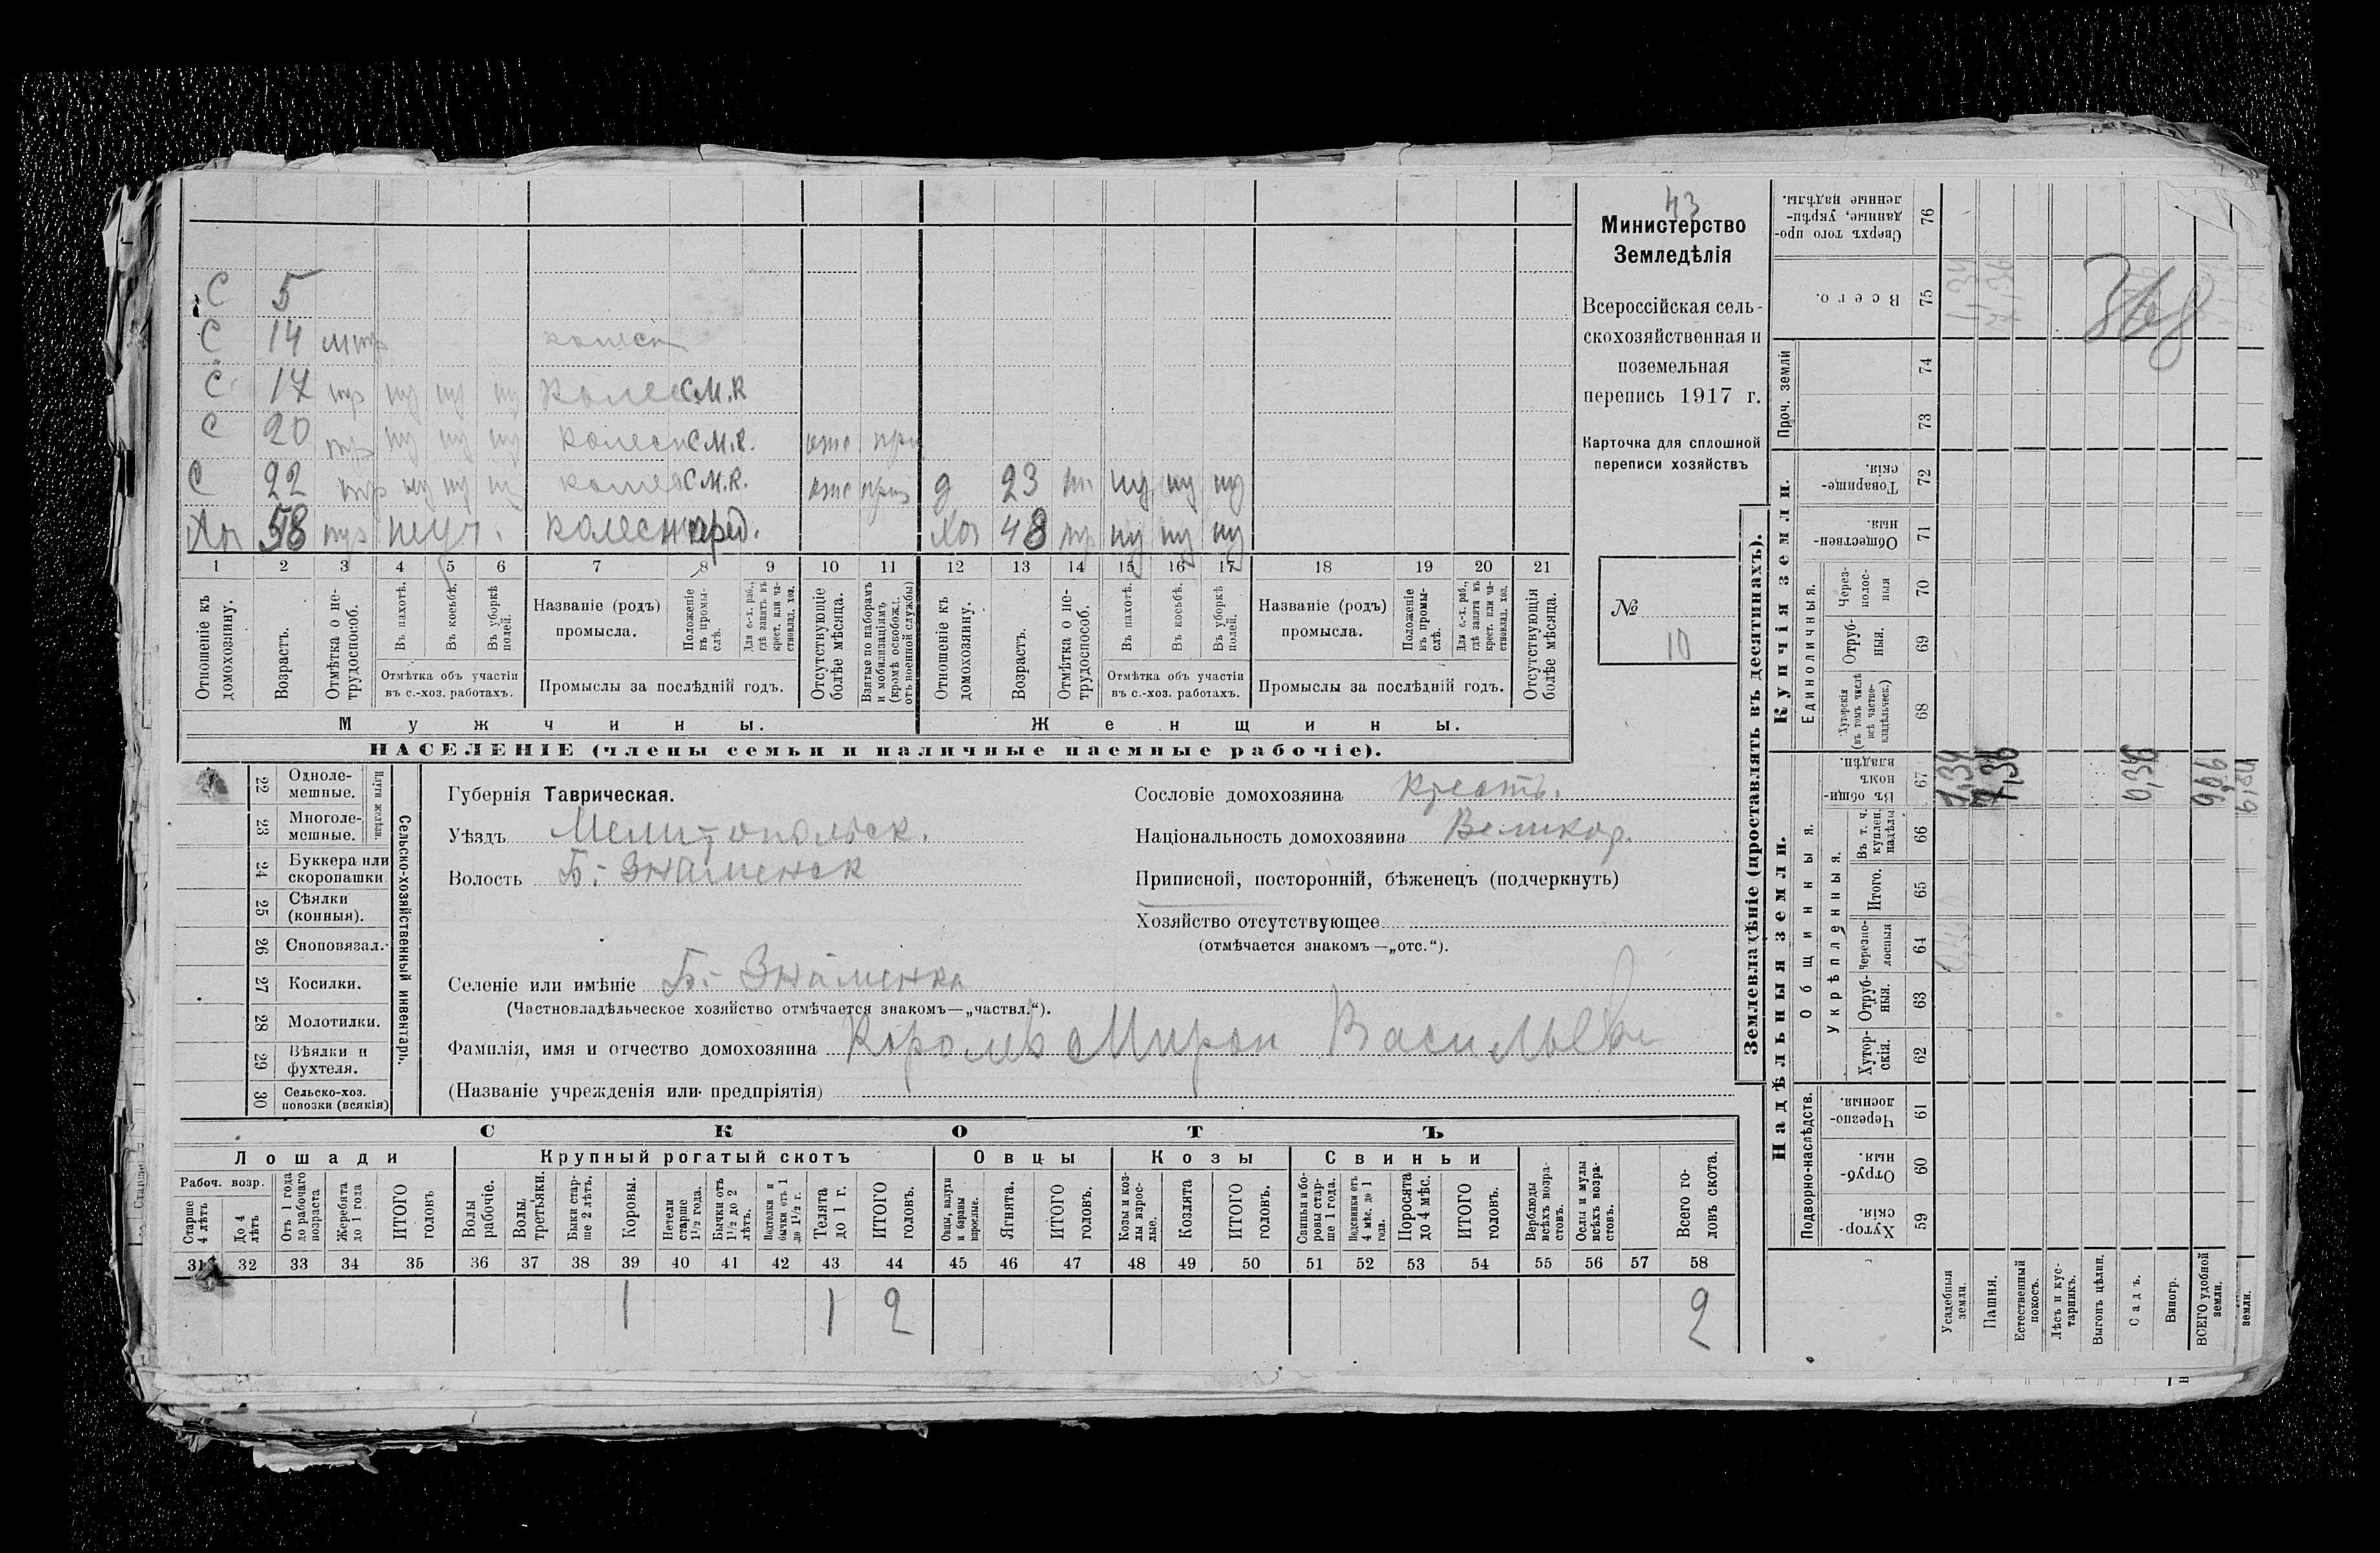 43
Министерство
Земледѣлія
Всероссійская сель-
скохозяйственная и
поземельная
перепись 1917 г.
Карточка для сплошной
переписи хозяйствъ
№
10
С 5
С 14
С 17 М.К
С 20 М.К.
С 22 С.М.К. д 23
Хоз 58 Хоз 48
1 2 3 4 5 6 7 8 9 10 11 12 13 14 15 16 17 18 19 20 21
Отношеніе къ домохозяину.
Возрастъ.
Отмѣтка о не-трудоспособ.
Въ пахотѣ.
Въ косьбѣ.
Въ уборкѣ полей.
Отмѣтка объ участіи
въ с.-хоз. работахъ.
Названіе (родъ)
промысла.
Положеніе въ промы-слѣ.
Для с.-х. раб., гдѣ занятъ въ крест. или ча-стновлад. хоз.
Промыслы за послѣдній годъ.
Отсутствующіе болѣе мѣсяца.
Взятые по наборамъ и мобилизаціямъ (кромѣ освобожд. отъ военной службы)
Отношеніе къ домохозяину.
Возрастъ.
Отмѣтка о не-трудоспособ.
Въ пахотѣ.
Въ косьбѣ.
Въ уборкѣ полей.
Отмѣтка объ участіи
въ с.-хоз. работахъ.
Названіе (родъ)
промысла.
Положеніе въ промы-слѣ.
Для с.-х. раб., гдѣ занята въ крест. или ча-стновлад. хоз.
Промыслы за послѣдній годъ.
Отсутствующія болѣе мѣсяца.
Мужчины.
Женщины.
НАСЕЛЕНІЕ (члены семьи и наличные наемные рабочіе).
22 Одноле-мешные.
23 Многоле-мешные.
Плуги желѣзн.
24 Буккера или скоропашки
25 Сѣялки (конныя).
26 Сноповязал.
27 Косилки.
28 Молотилки.
29 Вѣялки и фухтеля.
30 Сельско-хоз. повозки (всякія)
Сельско-хозяйственный инвентарь.
Губернія Таврическая.
Уѣздъ Мелитопольск.
Волость Б.-Знаменск
Селеніе или имѣніе Б.-Знаменка
(Частновладѣльческое хозяйство отмѣчается знакомъ—„частвл.“).
Фамилія, имя и отчество домохозяина Король Мирон Васильев
(Названіе учрежденія или предпріятія)
Сословіе домохозяина Крестн.
Національность домохозяина Великор.
Приписной, посторонній, бѣженецъ (подчеркнуть)
Хозяйство отсутствующее
(отмѣчается знакомъ—„отс.“).
СКОТЪ
Лошади
Крупный рогатый скотъ
Овцы
Козы
Свиньи
Рабоч. возр.
Старше 4 лѣтъ
До 4 лѣтъ
Отъ 1 года до рабочаго возраста
Жеребята до 1 года
ИТОГО головъ
Волы рабочіе.
Волы третьяки.
Быки стар-ше 2 лѣтъ.
Коровы.
Нетели старше 1½ года.
Бычки отъ 1½ до 2 лѣтъ.
Подтелки и бычки отъ 1 до 1½ г.
Телята до 1 г.
ИТОГО головъ.
Овцы, валухи и бараны взрослые.
Ягнята.
ИТОГО головъ.
Козы и коз-лы взрос-лые.
Козлята
ИТОГО головъ.
Свиньи и бо-ровы стар-ше 1 года.
Подсвинки отъ 4 мѣс. до 1 года.
Поросята до 4 мѣс.
ИТОГО головъ.
Верблюды всѣхъ возра-стовъ.
Ослы и мулы всѣхъ возра-стовъ.
Всего го-ловъ скота.
31 32 33 34 35 36 37 38 39 40 41 42 43 44 45 46 47 48 49 50 51 52 53 54 55 56 57 58
1 1 2 2
Землевладѣніе (проставлять въ десятинахъ).
Надѣльныя земли.
Купчія земли.
Проч. земли
Подворно-наслѣдств.
Общинныя.
Укрѣпленныя.
Единоличныя.
Хутор-скія. 59
Отруб-ныя. 60
Черезпо-лосныя. 61
Хутор-скія. 62
Отруб-ныя. 63
Черезпо-лосныя 64
Итого. 65
Въ т. ч. куплен. надѣлы 66
Въ общи-номъ владѣн. 67
Хуторскія (въ томъ числѣ всѣ частно-владѣльческ.) 68
Отруб-ныя. 69
Через-полос-ныя 70
Обществен-ныя. 71
Товарище-скія. 72
73
74
Всего. 75
Сверхъ того про-данные, укрѣп-ленные надѣлы. 76
Усадебныя земли.
Пашня.
Естественный покосъ.
Лѣсъ и кус-тарникъ.
Выгонъ цѣлин.
Садъ.
Виногр.
ВСЕГО удобной земли.
земли.
1,34
7,36
0,36
9,06